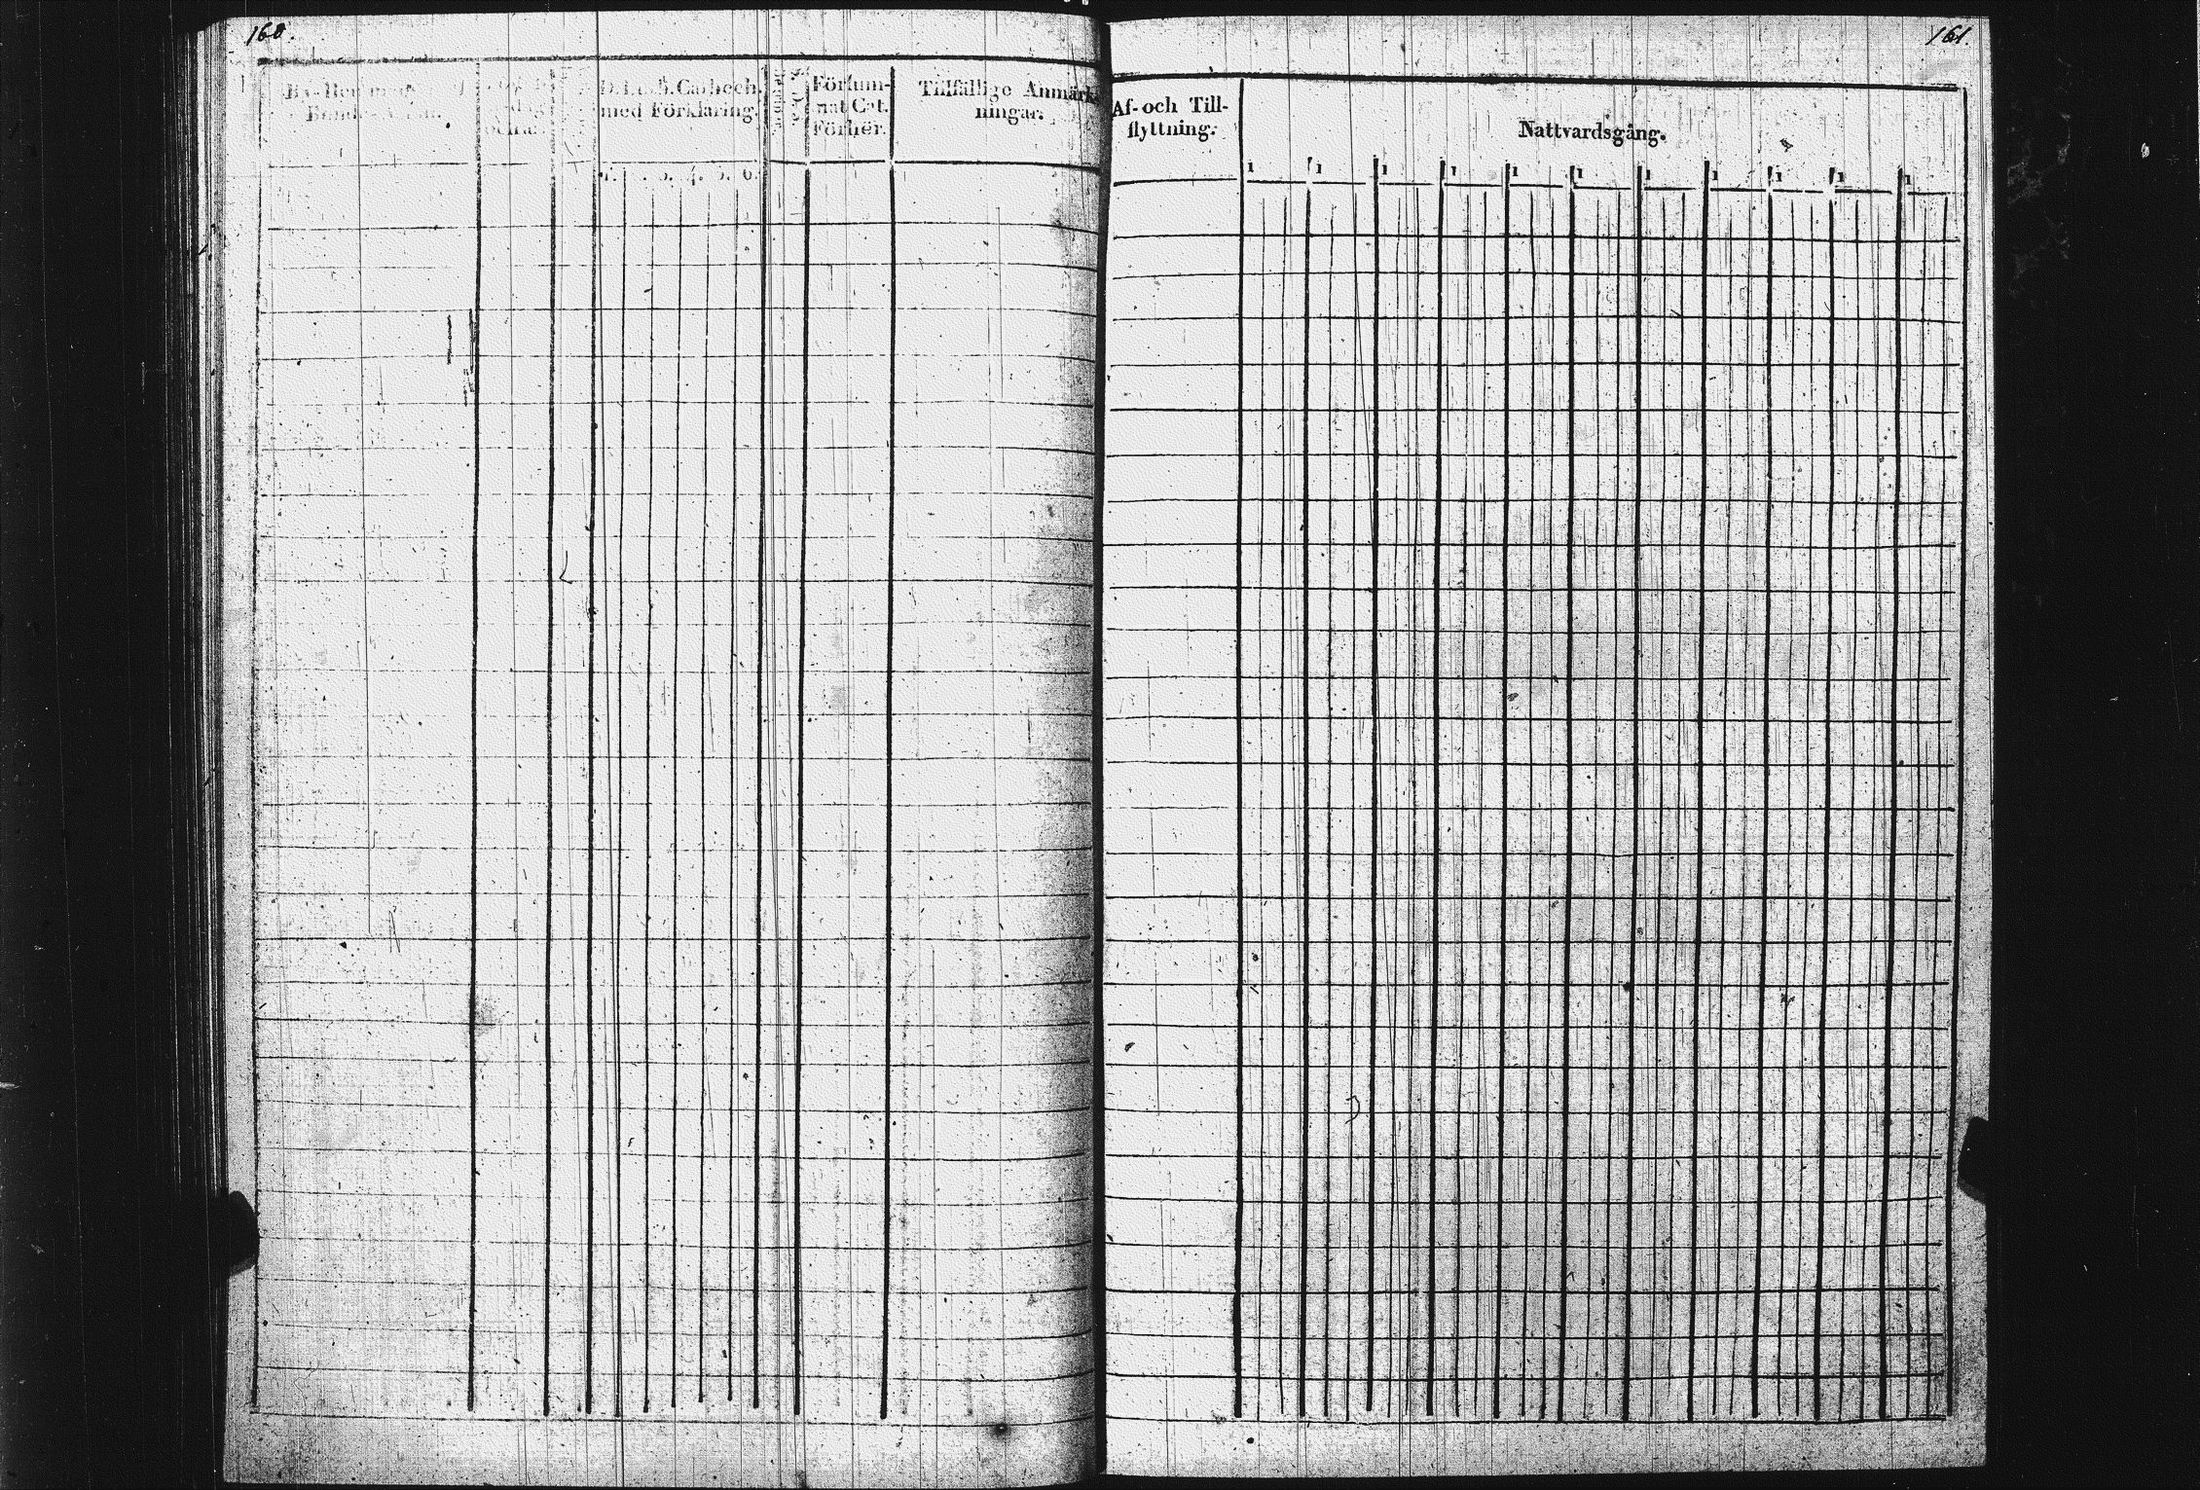 160.
med
D. Luth. Cathech.
med Förklaring.
4. 5. 6.
Försum-
nat Cat.
Förhör.
Tillfällige Anmärk-
ningar.
161.
Af- och Till-
flyttning.
Nattvardsgång.
1 1 1 1 1 1 1 1 1 1 1